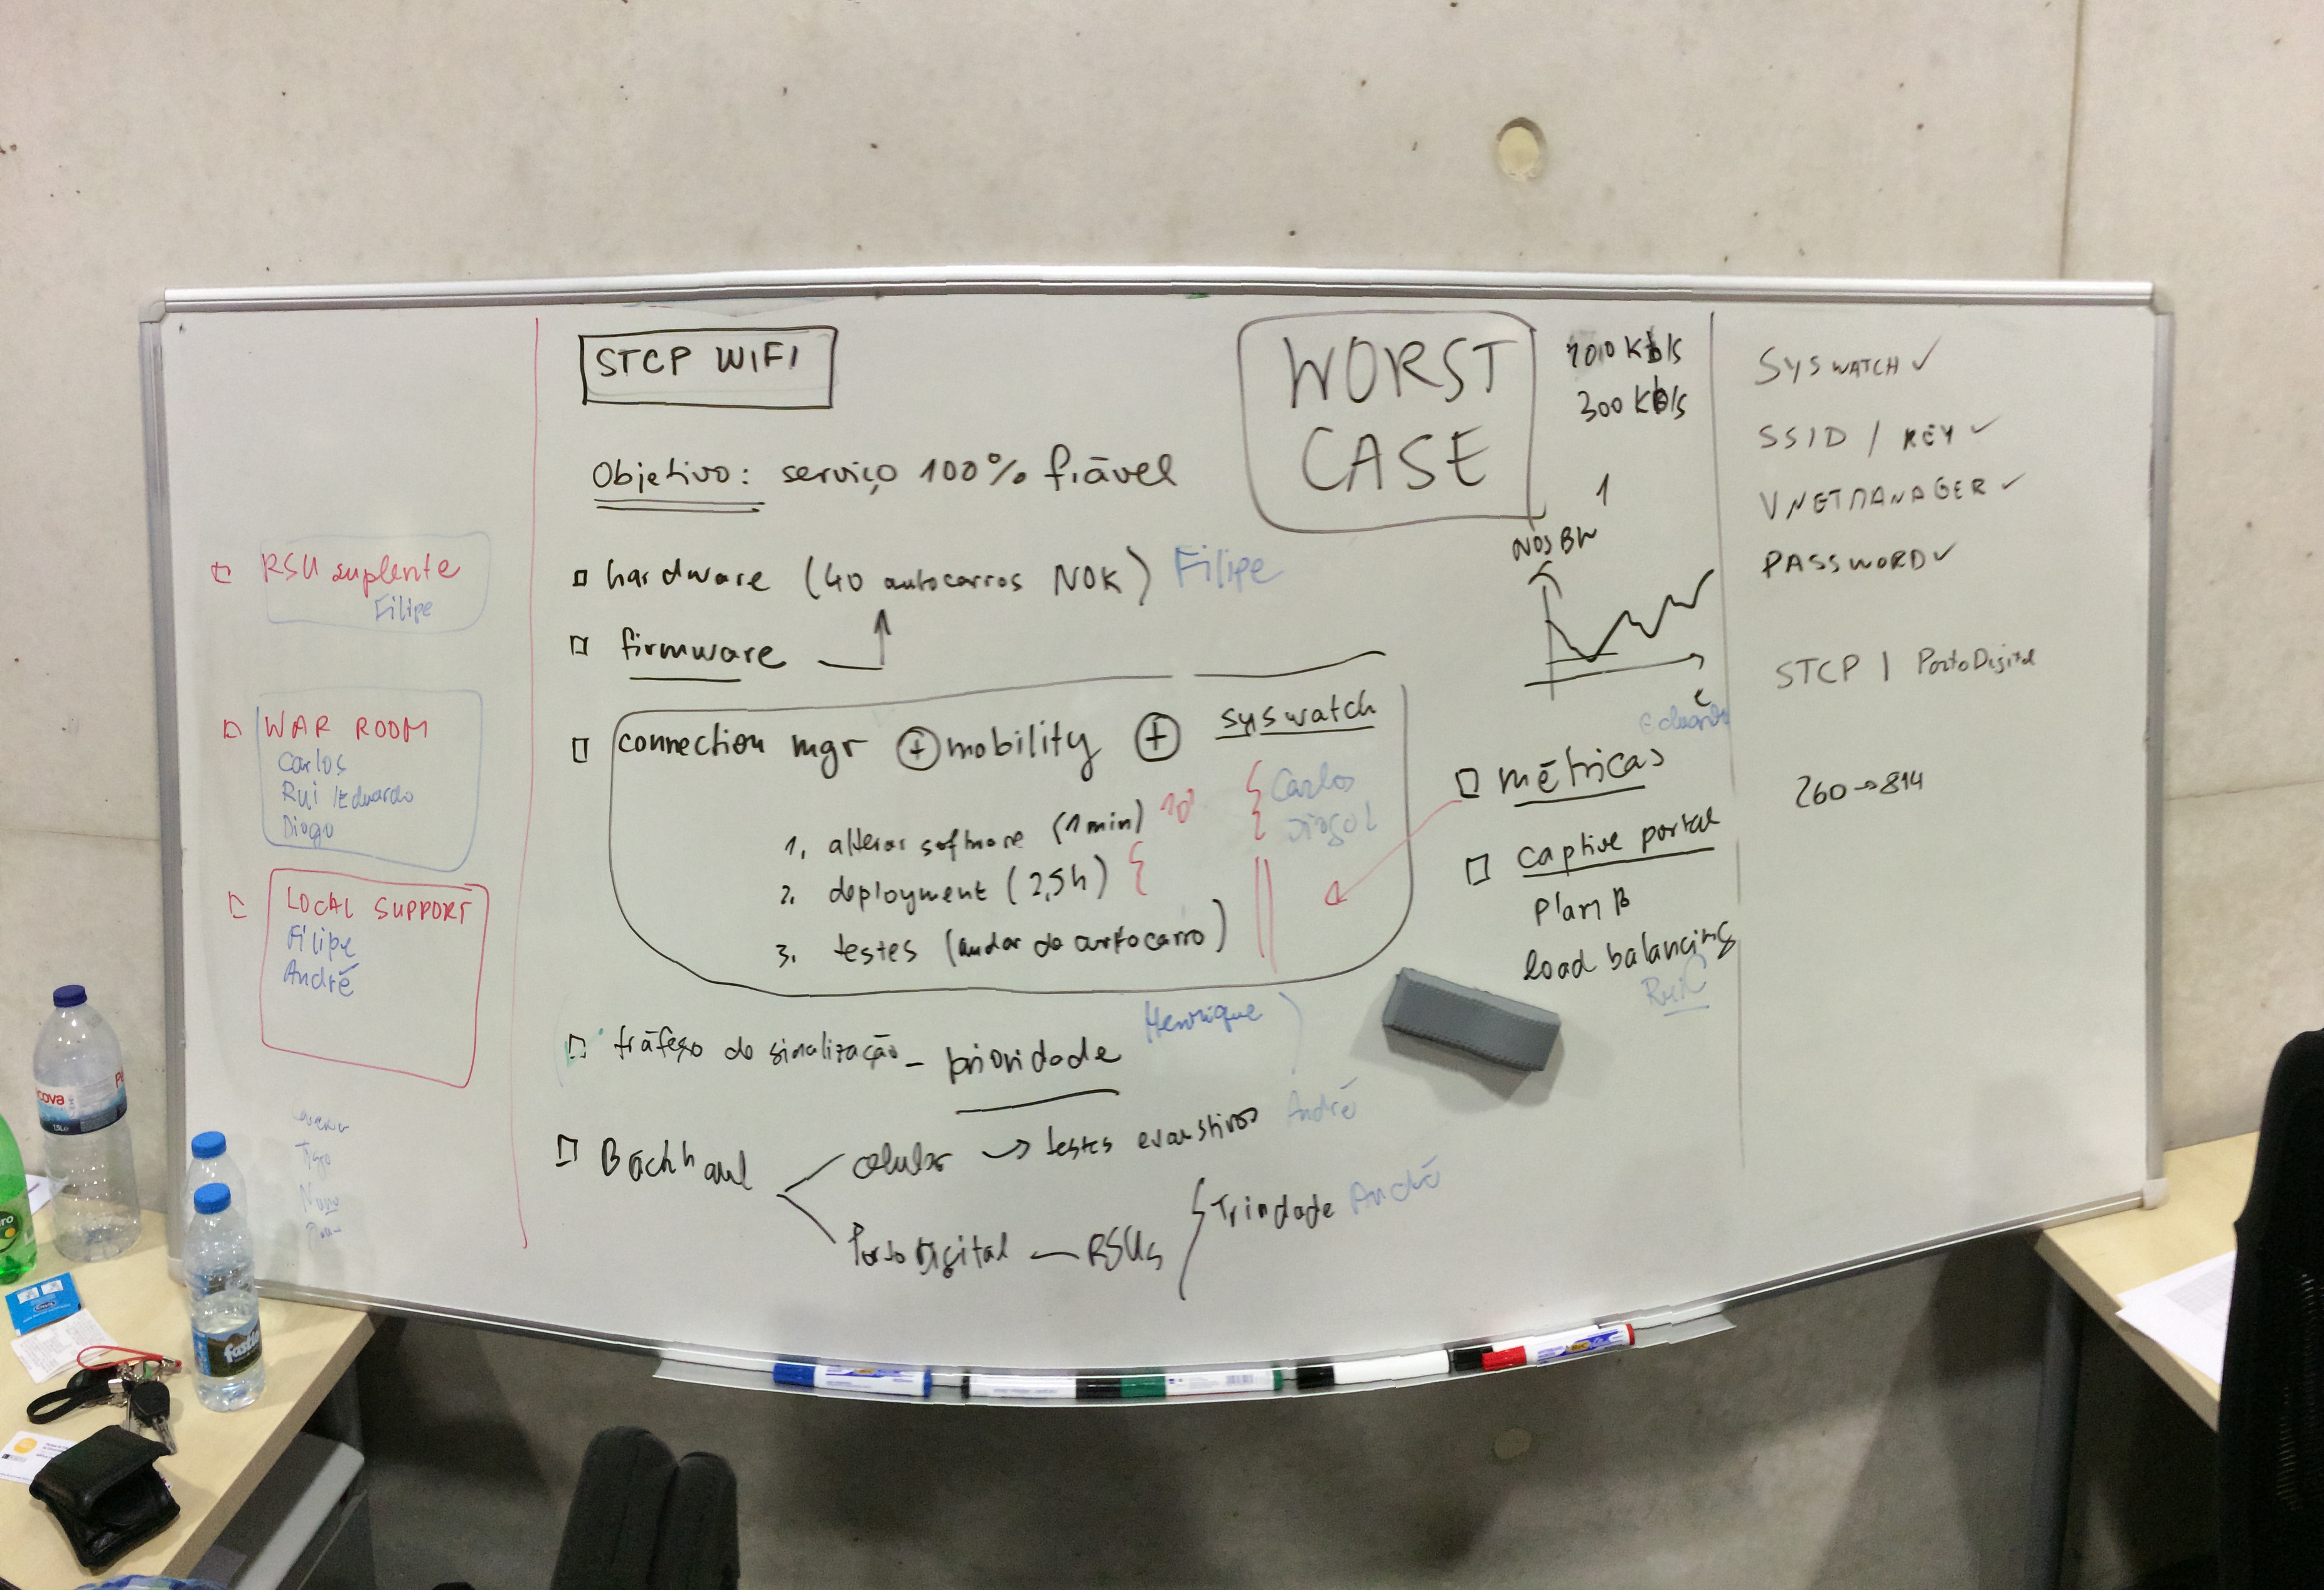 RSU suplente
Filipe
WAR ROOM
Carlos
Rui / Eduardo
Diogo
LOCAL SUPPORT
Filipe
André
STCP WIFI
Objetivo: serviço 100% fiável
hardware (40 autocarros NOK) Filipe
firmware
connection mgr + mobility + syswatch
1. alterar software (1 min) 10'
Carlos
2. deployment (2,5h)
3. testes (andar de autocarro)
tráfego de sinalização - prioridade Henrique
Backhaul
celular → testes exaustivos André
Porto Digital — RSUs Trindade André
WORST
CASE
300 kb/s
1
Nós BW
t
Eduardo
métricas
captive portal
Plan B
load balancing
Rui C
SYSWATCH ✓
SSID / KEY ✓
VNETMANAGER ✓
PASSWORD ✓
STCP | PortoDigital
260 → 814
cova
fastio